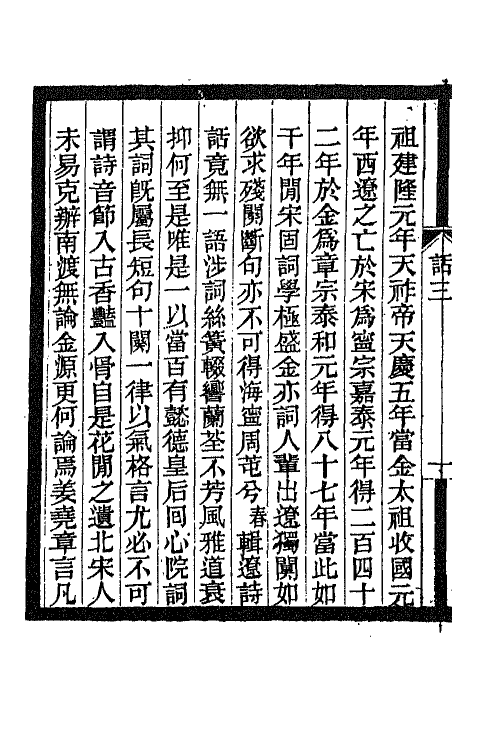 祖建隆元年天祚帝天慶五年當金太祖收國元
年西遼之亡於宋爲寧宗嘉泰元年得二百四十
二年於金爲章宗泰和元年得八十七年當此如
干年閒宋固詞學極盛金亦詞人輩出遼獨闃如
欲求殘闋斷句亦不可得海寧周芚兮春輯遼詩
話竟無一語涉詞絲簧輟響蘭荃不芳風雅道衰
抑何至是唯是一以當百有懿德皇后回心院詞
其詞旣屬長短句十闋一律以氣格言尤必不可
謂詩音節入古香豔入骨自是花閒之遺北宋人
未易克辦南渡無論金源更何論焉姜堯章言凡
話三
十